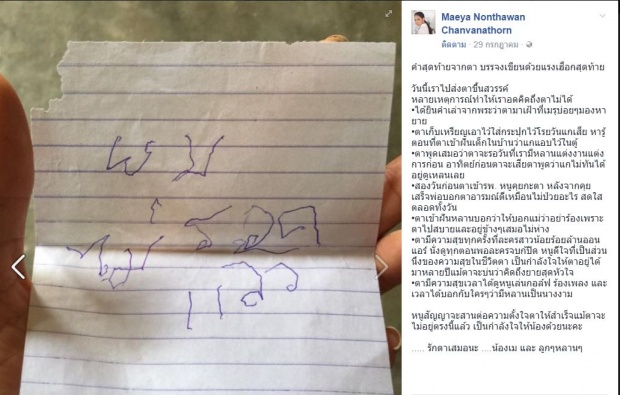 ผม
ไม่ รอด
แล้ว
Maeya Nonthawan
Chanvanathorn
ติดตาม · 29 กรกฎาคม ·
คำสุดท้ายจากตา บรรจงเขียนด้วยแรงเฮือกสุดท้าย
วันนี้เราไปส่งตาขึ้นสวรรค์
หลายเหตุการณ์ทำให้เราอดคิดถึงตาไม่ได้
•ได้ยินคำเล่าจากพระว่าตามาเฝ้าที่เมรุบ่อยๆมองหา
ยาย
•ตาเก็บเหรียญเอาไว้ใส่กระปุกไว้โรยวันแกเสีย หารู้
ตอนที่ตาเข้าฝันเด็กในบ้านว่าแกแอบไว้ในตู้
•ตาพูดเสมอว่าตาจะรอวันที่เรามีหลานแต่งงานแต่ง
การก่อน อาทิตย์ก่อนตาจะเสียตาพูดว่าแกไม่ทันได้
อยู่ดูเหลนเลย
•สองวันก่อนตาเข้ารพ. หนูคุยกะตา หลังจากคุย
เสร็จพ่อบอกตาอารมณ์ดีเหมือนไม่ป่วยอะไร สดใส
ตลอดทั้งวัน
•ตาเข้าฝันหลานบอกว่าให้บอกแม่ว่าอย่าร้องเพราะ
ตาไปสบายและอยู่ข้างๆเสมอไม่ห่าง
•ตามีความสุขทุกครั้งที่ละครสาวน้อยร้อยล้านออน
แอร์ นั่งดูทุกตอนพอละครจบก็ปิด หนูดีใจที่เป็นส่วน
นึงของความสุขในชีวิตตา เป็นกำลังใจให้ตาอยู่ได้
มาหลายปีแม้ตาจะบ่นว่าคิดถึงยายสุดหัวใจ
•ตามีความสุขเวลาได้ดูหนูเล่นกอล์ฟ ร้องเพลง และ
เวลาได้บอกกับใครๆว่ามีหลานเป็นนางงาม
หนูสัญญาจะสานต่อความตั้งใจตาให้สำเร็จแม้ตาจะ
ไม่อยู่ตรงนี้แล้ว เป็นกำลังใจให้น้องด้วยนะคะ
..... รักตาเสมอนะ ....น้องเม และ ลูกๆหลานๆ